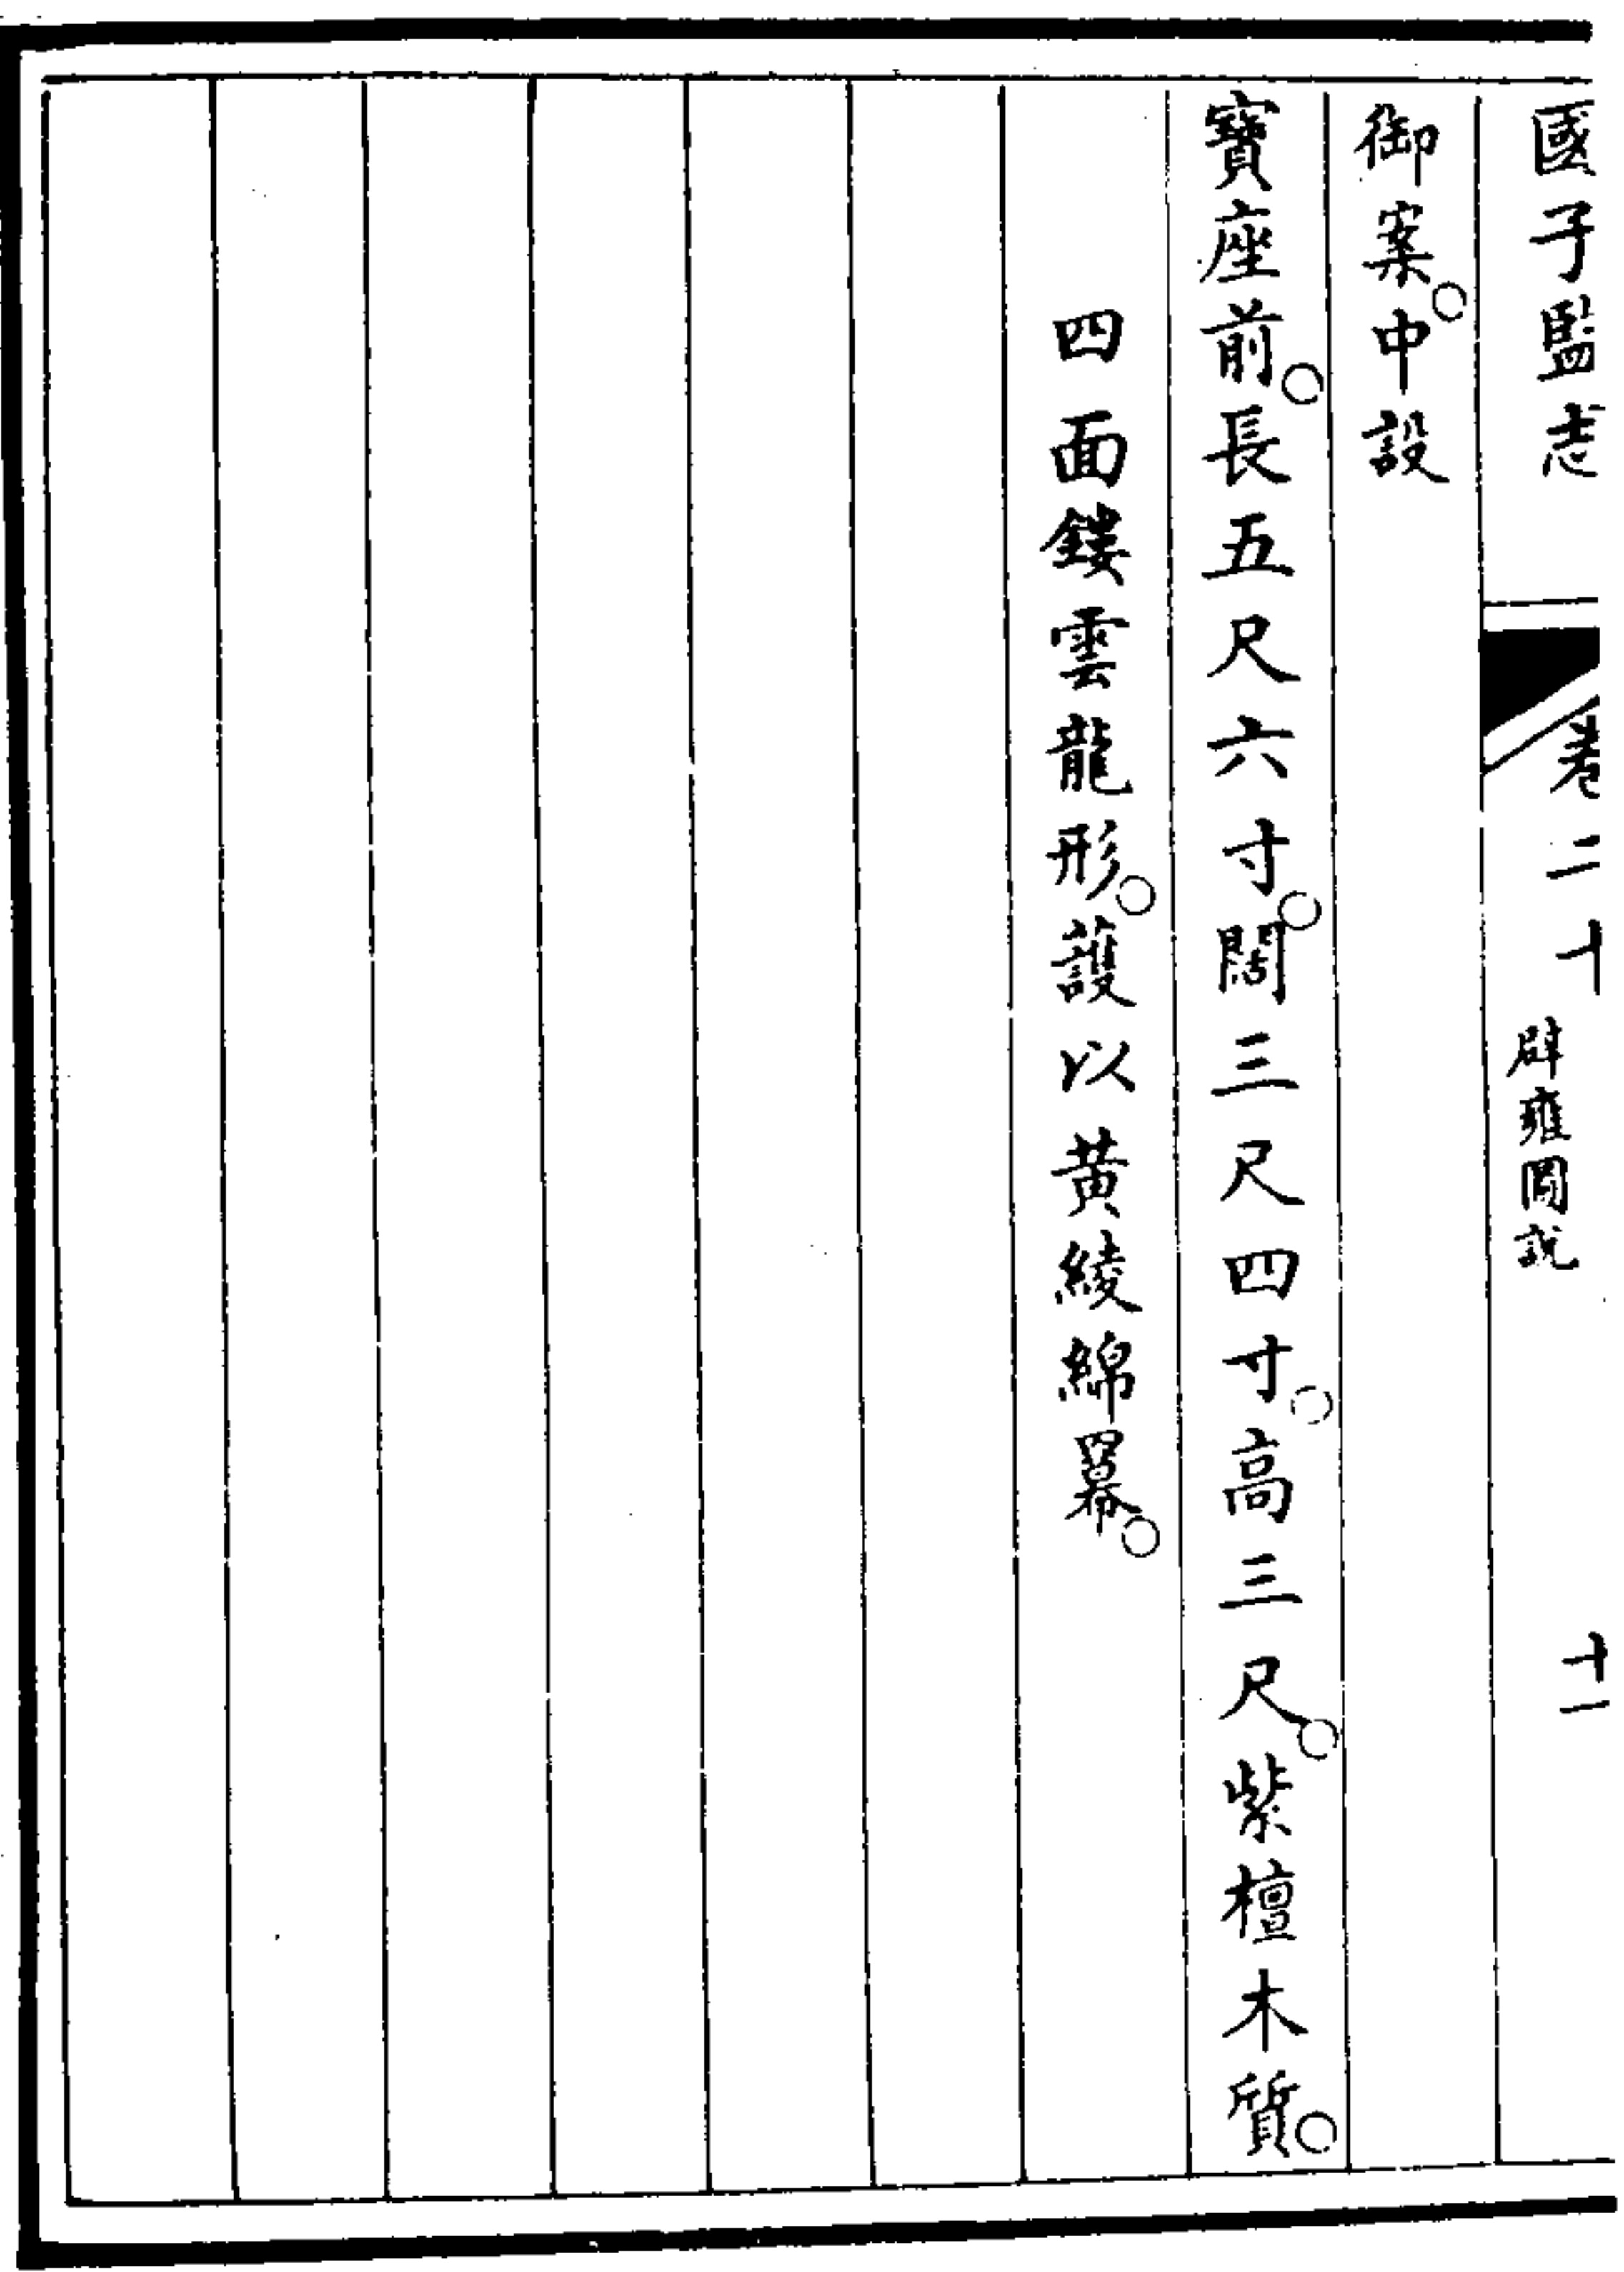 國子監志 卷二十 辟雍圖說 十一
御案。中設
寶座前。長五尺六寸。闊三尺四寸。高三尺。紫檀木質。
四面鏤雲龍形。護以黃綾綿幂。